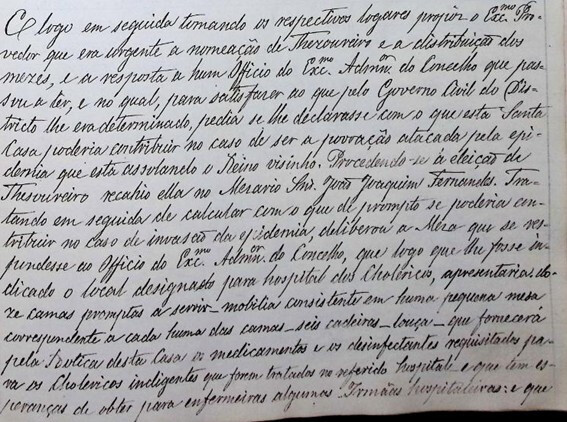 E logo em seguida tomando os respectivos logares propôz o Exc.mo Pro-
vedor que era urgente a nomeação de Thezoureiro e a distribuição dos
mezes, e a resposta a hum Officio do Exc.mo Admn.or do Concelho que pas-
sou a ler, e no qual, para satisfazer ao que pelo Governo Civil do Dis-
tricto lhe era determinado, pedia se lhe declarasse com o que esta Santa
Casa poderia contribuir no caso de ser a povoação atacada pela epi-
demia que esta assolando o Reino visinho. Procedendo-se á eleição de
Thesoureiro recahio ella no Mesario Snr. João Joaquim Fernandes. Tra-
tando em seguida de calcular com o que de prompto se poderia con-
tribuir no caso de invasão da epidemia, deliberou a Mesa que se res-
pondesse ao Officio do Exc.mo Admn.or do Concelho, que logo que lhe fosse in-
dicado o local designado para hospital dos Cholericos, apresentaria do-
ze camas promptas a servir_mobilia consistente em huma pequena mesa
correspondente a cada huma das camas_seis cadeiras_louça_que fornecerá
pela Botica desta Casa os medicamentos e os desinfectantes requisitados pa-
ra os Cholericos indigentes que forem tratados no referido hospital e que tem es-
peranças de obter para enfermeiras algumas Irmãas hospitaleiras: e que